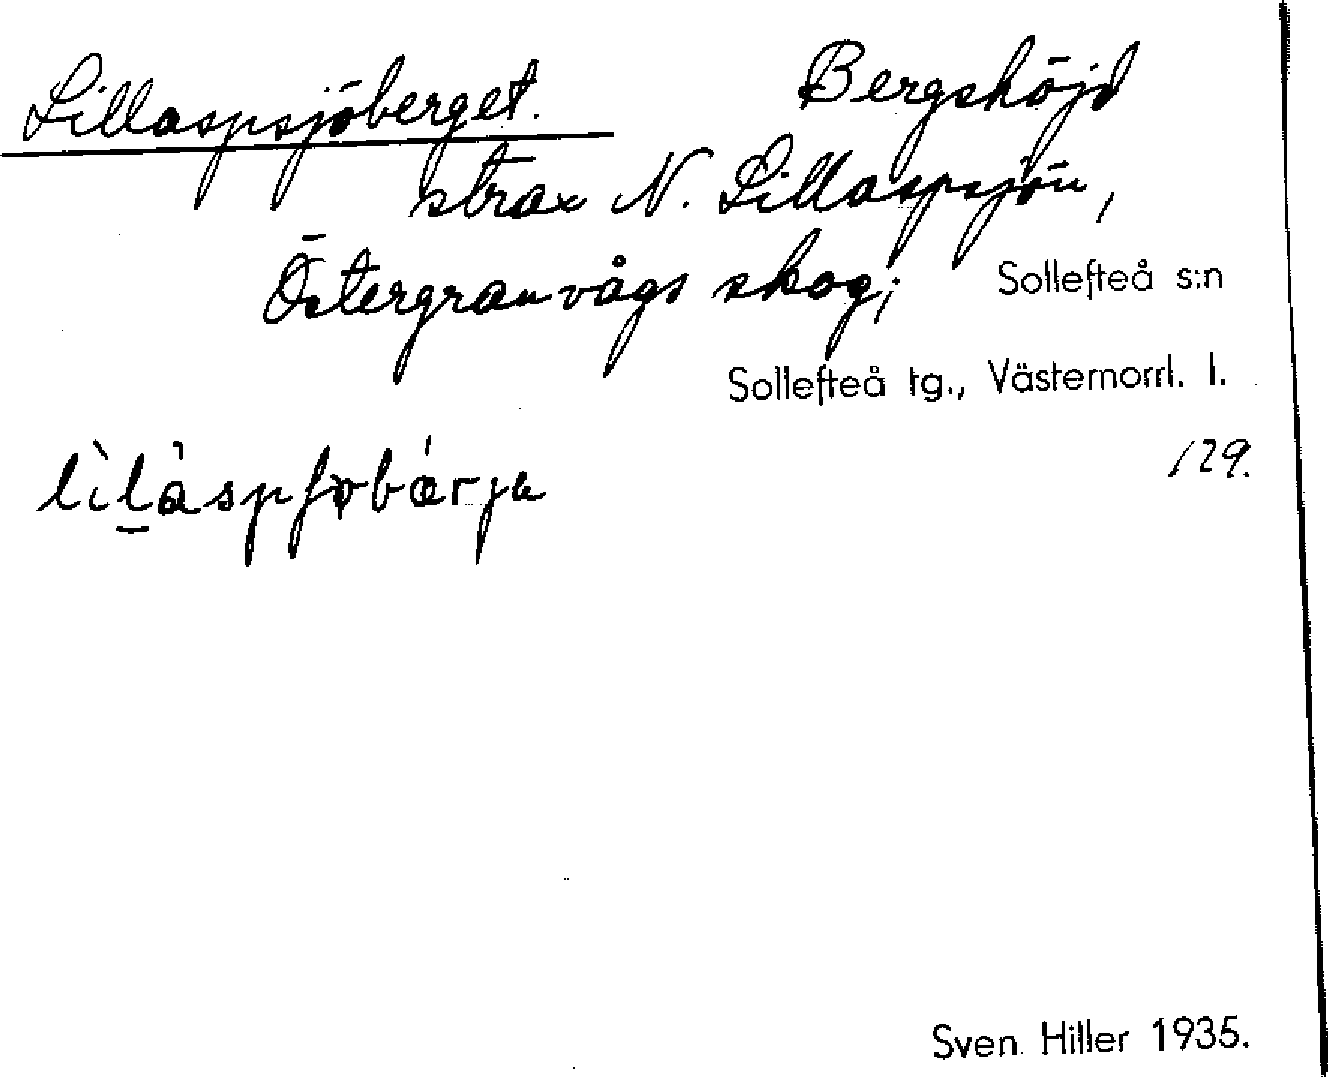 Lillaspsjöberget. Bergshöjd
strax N. Lillaspsjön,
Östergranvågs skog; Sollefteå s:n
Sollefteå tg., Västernorrl. l.
129.
Sven Hiller 1935.